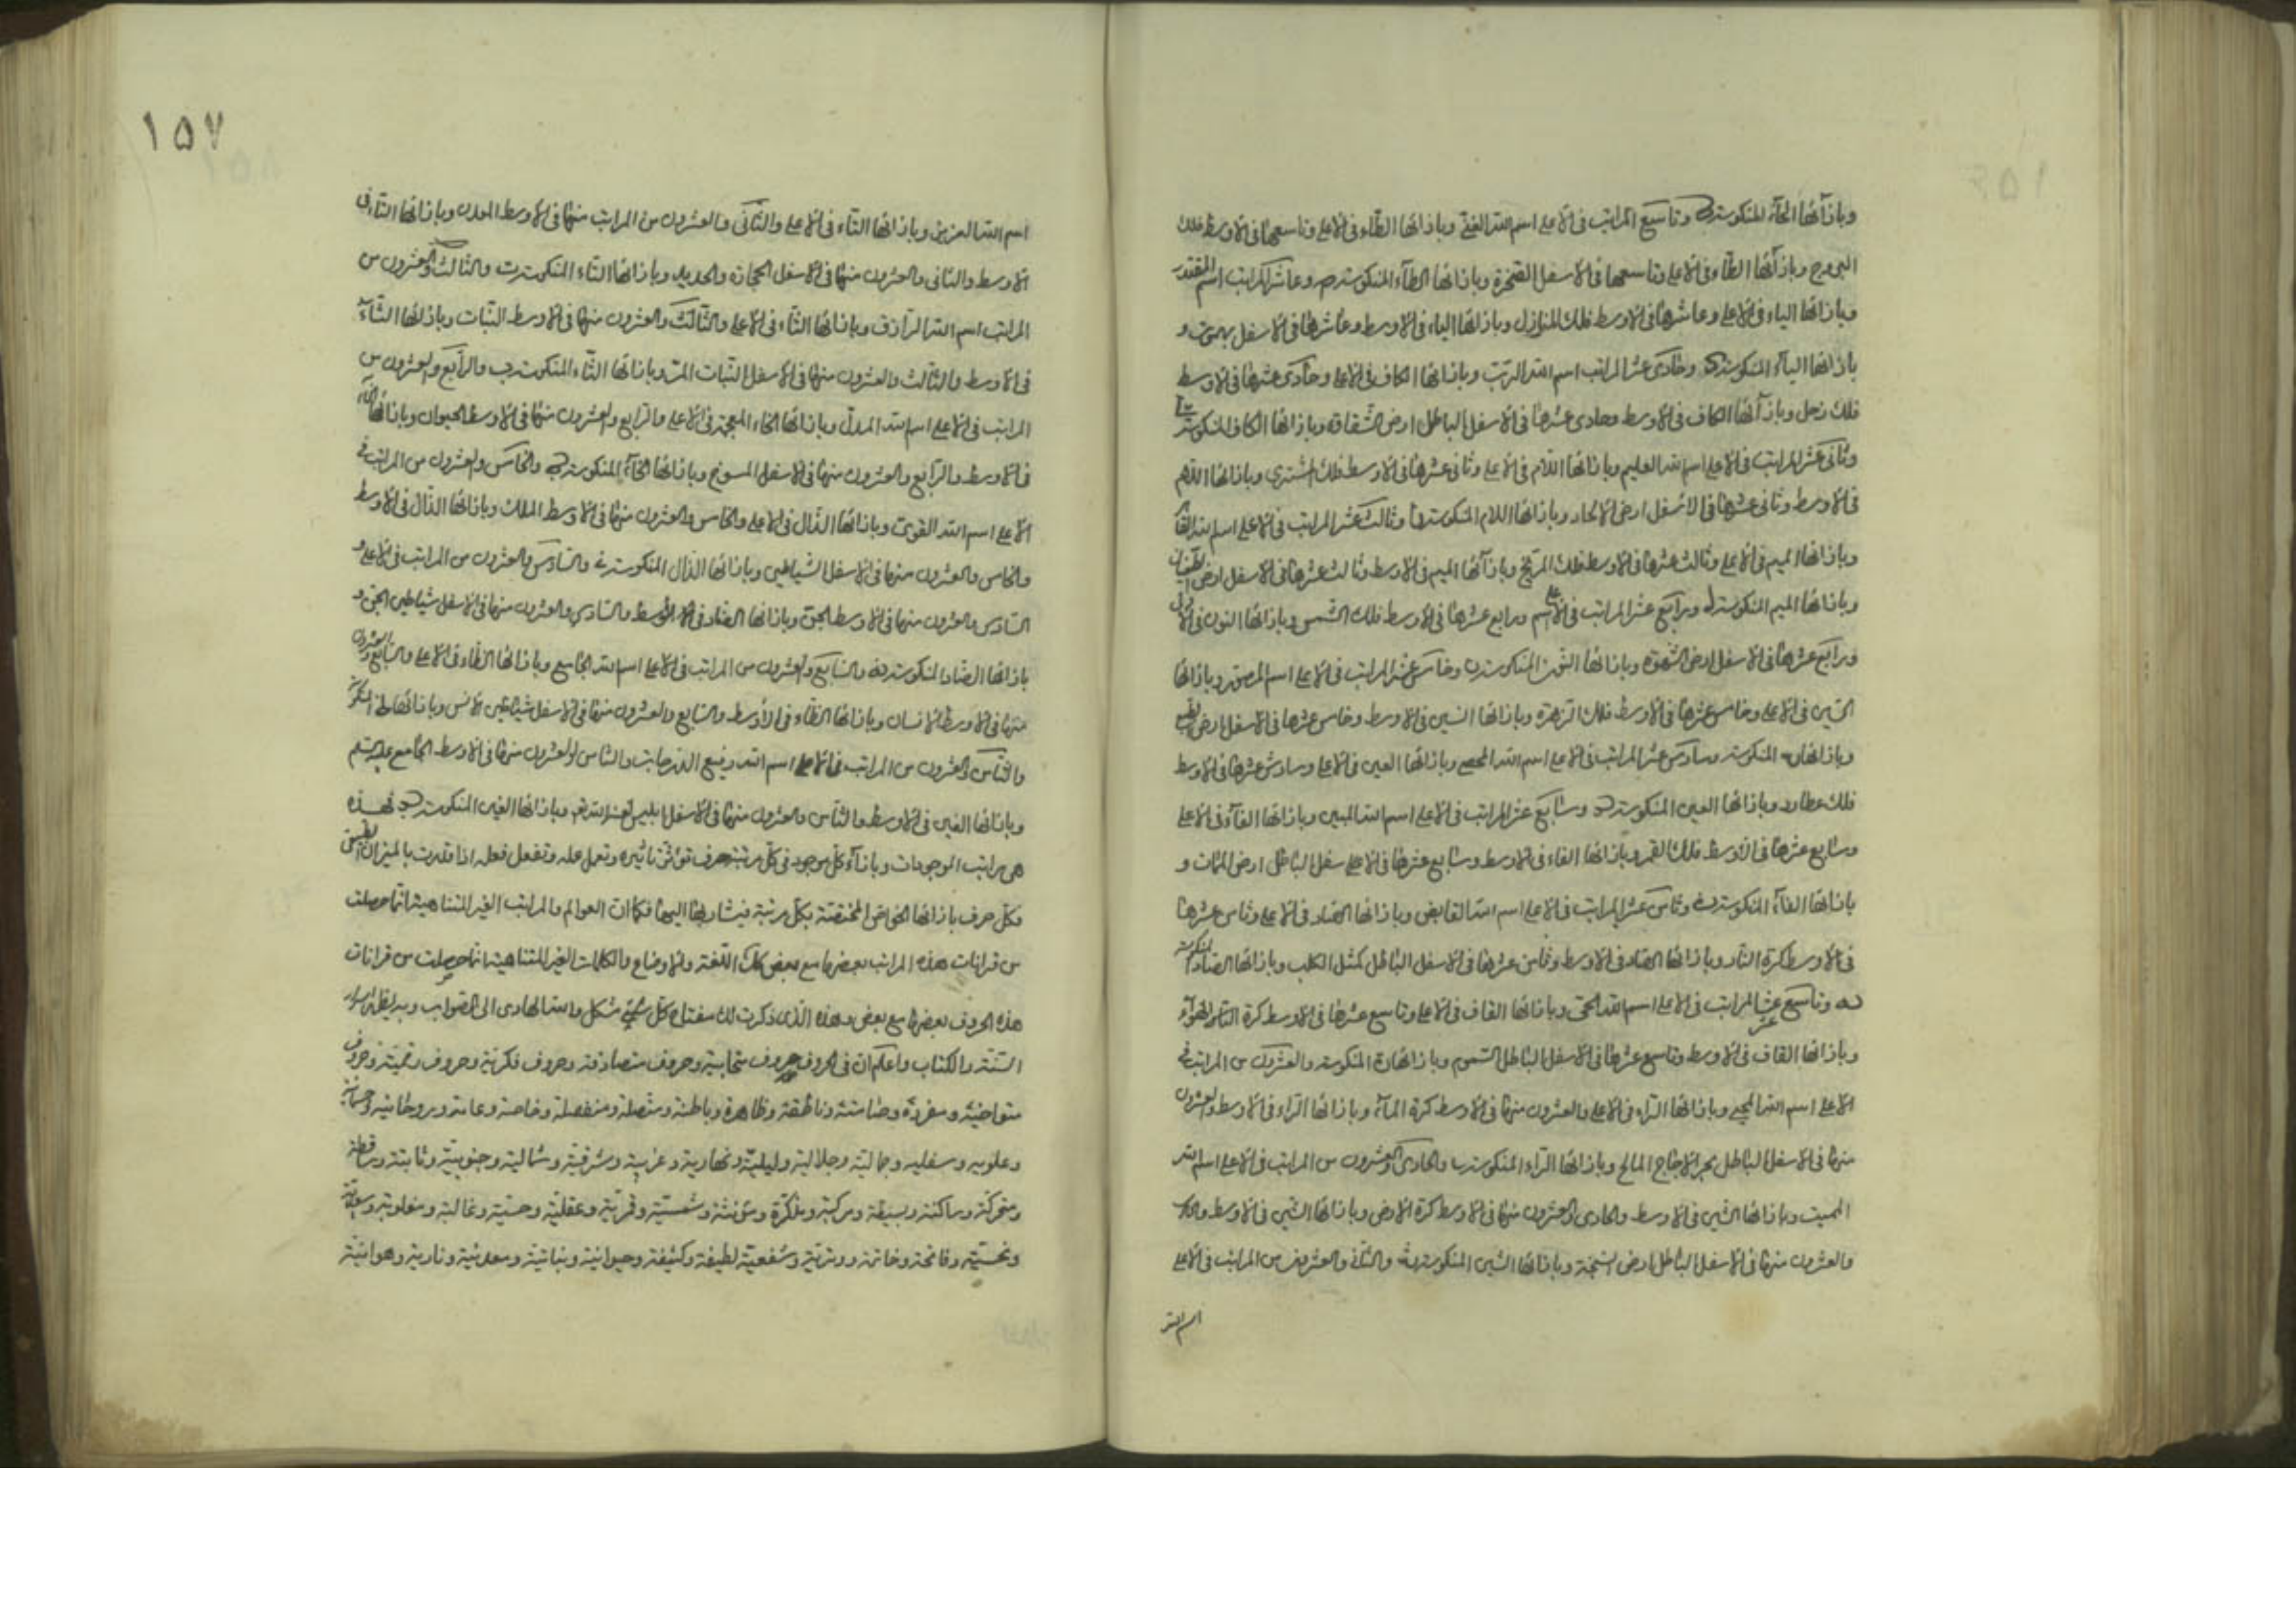 وبازآئها الحآء المنكوسة وتاسع المراتب فی الاعلی اسم الله الغنی وبازائها الطاء فی الاعلی وتاسعها فی الاوسط فلك
البروج وبازآئها الطآء فی الاعلی وتاسعها فی الاسفل الصخرة وبازائها الطآء المنكوسة وعاشر المراتب اسم المقتدر
وبازائها الیاء فی الاعلی وعاشرها فی الاوسط فلك المنازل وبازائها الیاء فی الاوسط وعاشرها فی الاسفل
بازائها الیآء المنكوسة وحادی عشر المراتب اسم الله الرب وبازائها الكاف فی الاعلی وحادی عشرها فی الاوسط
فلك زحل وبازآئها الكاف فی الاوسط وحادی عشرها فی الاسفل الباطل ارض الشقاوة وبازائها الكاف المنكوسة
وثانی عشر المراتب فی الاعلی اسم الله العلیم وبازائها اللام فی الاعلی وثانی عشرها فی الاوسط فلك المشتری وبازائها اللام
فی الاوسط وثانی عشرها فی الاسفل ارض الالحاد وبازائها اللام المنكوسة وثالث عشر المراتب فی الاعلی اسم الله القاهر
وبازائها المیم فی الاعلی وثالث عشرها فی الاوسط فلك المریخ وبازآئها المیم فی الاوسط وثالث عشرها فی الاسفل ارض الطغیان
وبازائها المیم المنكوسة ورابع عشر المراتب فی الاعلی اسم ورابع عشرها فی الاوسط فلك الشمس وبازائها النون فی الاول
ورابع عشرها فی الاسفل ارض الشهوة وبازائها النون المنكوسة وخامس عشر المراتب فی الاعلی اسم المصور وبازائها
السین فی الاعلی وخامس عشرها فی الاوسط فلك الزهرة وبازائها السین فی الاوسط وخامس عشرها فی الاسفل ارض الطبع
وبازائها المنكوسة وسادس عشر المراتب فی الاعلی اسم الله المحصی وبازائها العین فی الاعلی وسادس عشرها فی الاوسط
فلك عطارد وبازائها العین المنكوسة وسابع عشر المراتب فی الاعلی اسم الله المبین وبازائها الفآء فی الاعلی
وسابع عشرها فی الاوسط فلك القمر وبازائها الفاء فی الاوسط وسابع عشرها فی الاعلی سفل الباطل ارض المات و
بازائها الفآء المنكوسة وثامن عشر المراتب فی الاعلی اسم الله القابض وبازائها الصاد فی الاعلی وثامن عشرها
فی الاوسط كرة النار وبازائها الصاد فی الاوسط وثامن عشرها فی الاسفل الباطل كمثل الكلب وبازائها الصاد المنكوسة
وتاسع عشر المراتب فی الاعلی اسم الله الحی وبازائها القاف فی الاعلی وتاسع عشرها فی الاوسط كرة الهوآء
وبازائها القاف فی الاوسط وتاسع عشرها فی الاسفل الباطل السموم وبازائها المنكوسة والعشرون من المراتب فی
الاعلی اسم الله المحیی وبازائها الراء فی الاعلی والعشرون منها فی الاوسط كرة المآء وبازائها الراء فی الاوسط والعشرون
منها فی الاسفل الباطل بحر الاجاج المالح وبازائها الراء المنكوسة والحادی والعشرون من المراتب فی الاعلی اسم الله
الممیت وبازائها الشین فی الاوسط والحادی والعشرون منها فی الاوسط كرة الارض وبازائها الشین فی الاوسط
والعشرون منها فی الاسفل الباطل ارض السبخة وبازائها الشین المنكوسة والثانی والعشرون من المراتب فی الاعلی
اسم الله
١٥٧
اسم الله العزیز وبازائها التاء فی الاعلی والثانی والعشرون من المراتب منها فی الاوسط المعدن وبازائها التاء فی
الاوسط والثانی والعشرون منها فی الاسفل الحجارة والحدید وبازائها التاء المنكوسة والثالث والعشرون من
المراتب اسم الله الرازق وبازائها الثاء فی الاعلی والثالث والعشرون منها فی الاوسط النبات وبازائها الثآء
فی الاوسط والثالث والعشرون منها فی الاسفل النبات المر وبازائها الثاء المنكوسة والرابع والعشرون من
المراتب فی الاعلی اسم الله المذل وبازائها الخاء المعجمة فی الاعلی والرابع والعشرون منها فی الاوسط الحیوان وبازائها الخاء
فی الاوسط والرابع والعشرون منها فی الاسفل المسوخ وبازائها الخآء المنكوسة والخامس والعشرون من المراتب فی
الاعلی اسم الله القوی وبازائها الذال فی الاعلی والخامس والعشرون منها فی الاوسط الملك وبازائها الذال فی الاوسط
والخامس والعشرون منها فی الاسفل الشیاطین وبازائها الذال المنكوسة والسادس والعشرون من المراتب فی الاعلی و
السادس والعشرون منها فی الاوسط الجن وبازائها الضاد فی الاوسط والسادس والعشرون منها فی الاسفل شیاطین الجن و
بازائها الضاد المنكوسة والسابع والعشرون من المراتب فی الاعلی اسم الله الجامع وبازائها الظاء فی الاعلی والسابع والعشرون
منها فی الاوسط الانسان وبازائها الظاء فی الاوسط والسابع والعشرون منها فی الاسفل شیاطین الانس وبازائها
والثامن والعشرون من المراتب فی الاعلی اسم الله رفیع الدرجات والثامن والعشرون منها فی الاوسط الجامع
وبازائها الغین فی الاوسط والثامن والعشرون منها فی الاسفل ابلیس لعنه الله وبازائها الغین المنكوسة فهذه
هی مراتب الموجودات وبازآء كل موجود فی كل مرتبة حرف تؤثر تاثیره وتعمل عمله وتفعل فعله اذا قدرت بالمیزان الطبیعی
فكل حرف بازائها الخواص المختصة بكل مرتبة فیشار بها الیها فكما ان العوالم والمراتب الغیر المتناهیة انما حصلت
من قرانات هذه المراتب بعضها مع بعض كذلك اللغة والاوضاع والكلمات الغیر المتناهیة انما حصلت من قرانات
هذه الحروف بعضها مع بعض وهذه الذی ذكرت لك مفتاح كل شیء مشكل والله الهادی الی الصواب وبه یظهر اسرار
السنة والكتاب واعلم ان فی الحروف حروف متحابیة وحروف متصادقة وحروف فكریة وحروف رقمیة وحروف
متواخیة ومفردة وصامتة وناطقة وظاهرة وباطنة ومتصلة ومنفصلة وخاصة وعامة وروحانیة وجسمانیة
وعلویه وسفلیه وجمالیة وجلالیة ولیلیة ونهاریة وغربیة وشرقیة وشمالیة وجنوبیة وثابتة
ومتحركة وساكنة وبسیطة ومركبة ومذكرة ومؤنثة وشمسیة وقمریة وعقلیة وحسیة وغالبة ومغلوبة وسعدیة
ونحسیة وفاتحة وخاتمة ووتریة وشفعیة لطیفة وكثیفة وحیوانیة ونباتیة ومعدنیة وناریة وهوائیة